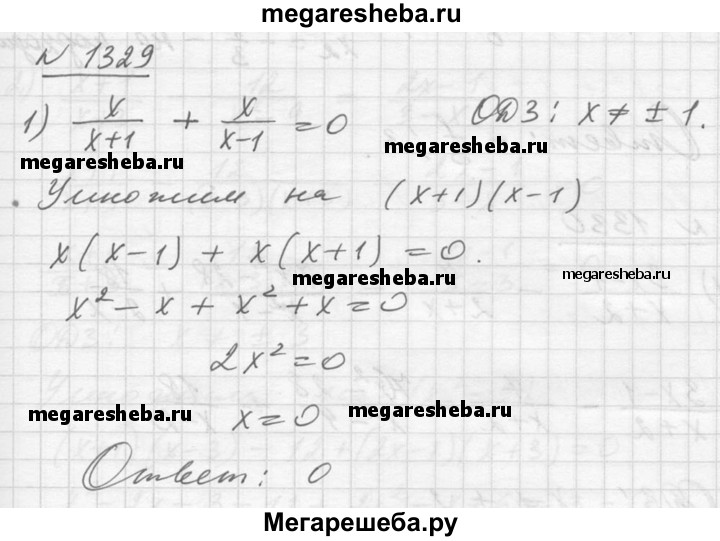 megaresheba.ru
№ 1329
1) x/(x+1) + x/(x-1) = 0 ОДЗ: x ≠ ± 1.
megaresheba.ru megaresheba.ru
Умножим на (x+1)(x-1)
x(x-1) + x(x+1) = 0.
megaresheba.ru megaresheba.ru
x² - x + x² + x = 0
2x² = 0
megaresheba.ru x = 0 megaresheba.ru
Ответ: 0
Мегарешеба.ру